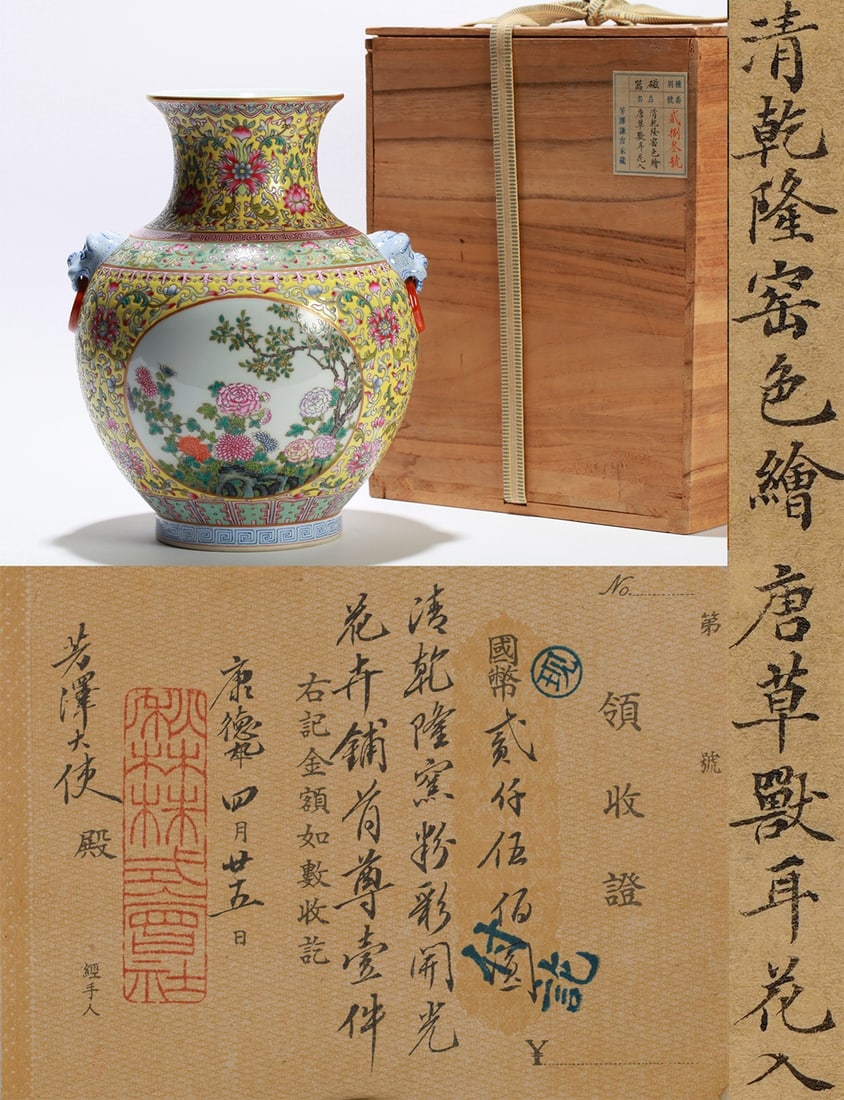 種別 磁器
番號 貳捌叁號
品名 清乾隆窑色繪
唐草獸耳花入
芳澤謙吉家藏
清乾隆窑色繪 唐草獸耳花入
第 號
No.
領收證
國幣貳仟伍佰圓
付訖
¥
清乾隆窯粉彩開光
花卉鋪首尊壹件
右記金額如數收訖
康德 四月廿五日
秋林株式會社
芳澤大使 殿
經手人